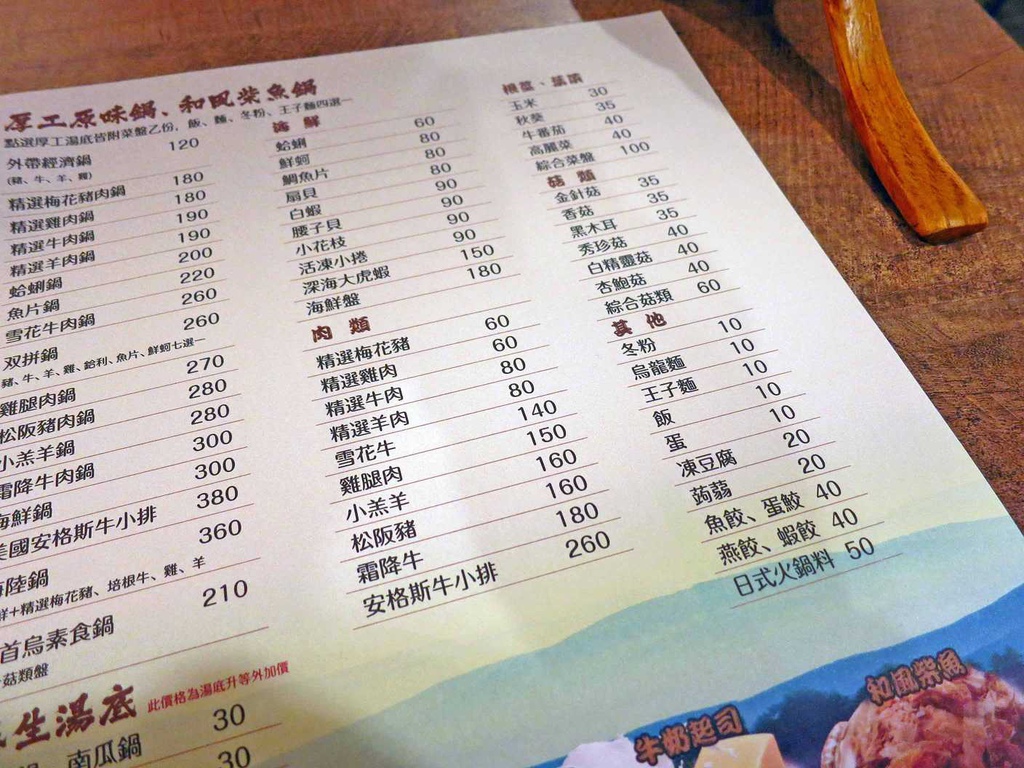 厚工原味鍋、和風柴魚鍋
點選厚工湯底皆附菜盤乙份，飯、麵、冬粉、王子麵四選一
外帶經濟鍋 120
(豬、牛、羊、雞)
精選梅花豬肉鍋 180
精選雞肉鍋 180
精選牛肉鍋 190
精選羊肉鍋 190
蛤蜊鍋 200
魚片鍋 220
雪花牛肉鍋 260
双拼鍋 260
豬、牛、羊、雞、鉿利、魚片、鮮蚵七選一
雞腿肉鍋 270
松阪豬肉鍋 280
小羔羊鍋 280
霜降牛肉鍋 300
海鮮鍋 300
美國安格斯牛小排 380
海陸鍋 360
鮮+精選梅花豬、培根牛、雞、羊
首烏素食鍋 210
菇類盤
生湯底 此價格為湯底升等外加價
南瓜鍋 30
30
海鮮
蛤蜊 60
鮮蚵 80
鯛魚片 80
扇貝 80
白蝦 90
腰子貝 90
小花枝 90
活凍小捲 90
深海大虎蝦 150
海鮮盤 180
肉類
精選梅花豬 60
精選雞肉 60
精選牛肉 80
精選羊肉 80
雪花牛 140
雞腿肉 150
小羔羊 160
松阪豬 160
霜降牛 180
安格斯牛小排 260
根莖、葉類
玉米 30
秋葵 35
牛番茄 40
高麗菜 40
綜合菜盤 100
菇類
金針菇 35
香菇 35
黑木耳 35
秀珍菇 40
白精靈菇 40
杏鮑菇 40
綜合菇類 60
其他
冬粉 10
烏龍麵 10
王子麵 10
飯 10
蛋 10
凍豆腐 20
蒟蒻 20
魚餃、蛋餃 40
燕餃、蝦餃 40
日式火鍋料 50
牛奶起司
和風柴魚